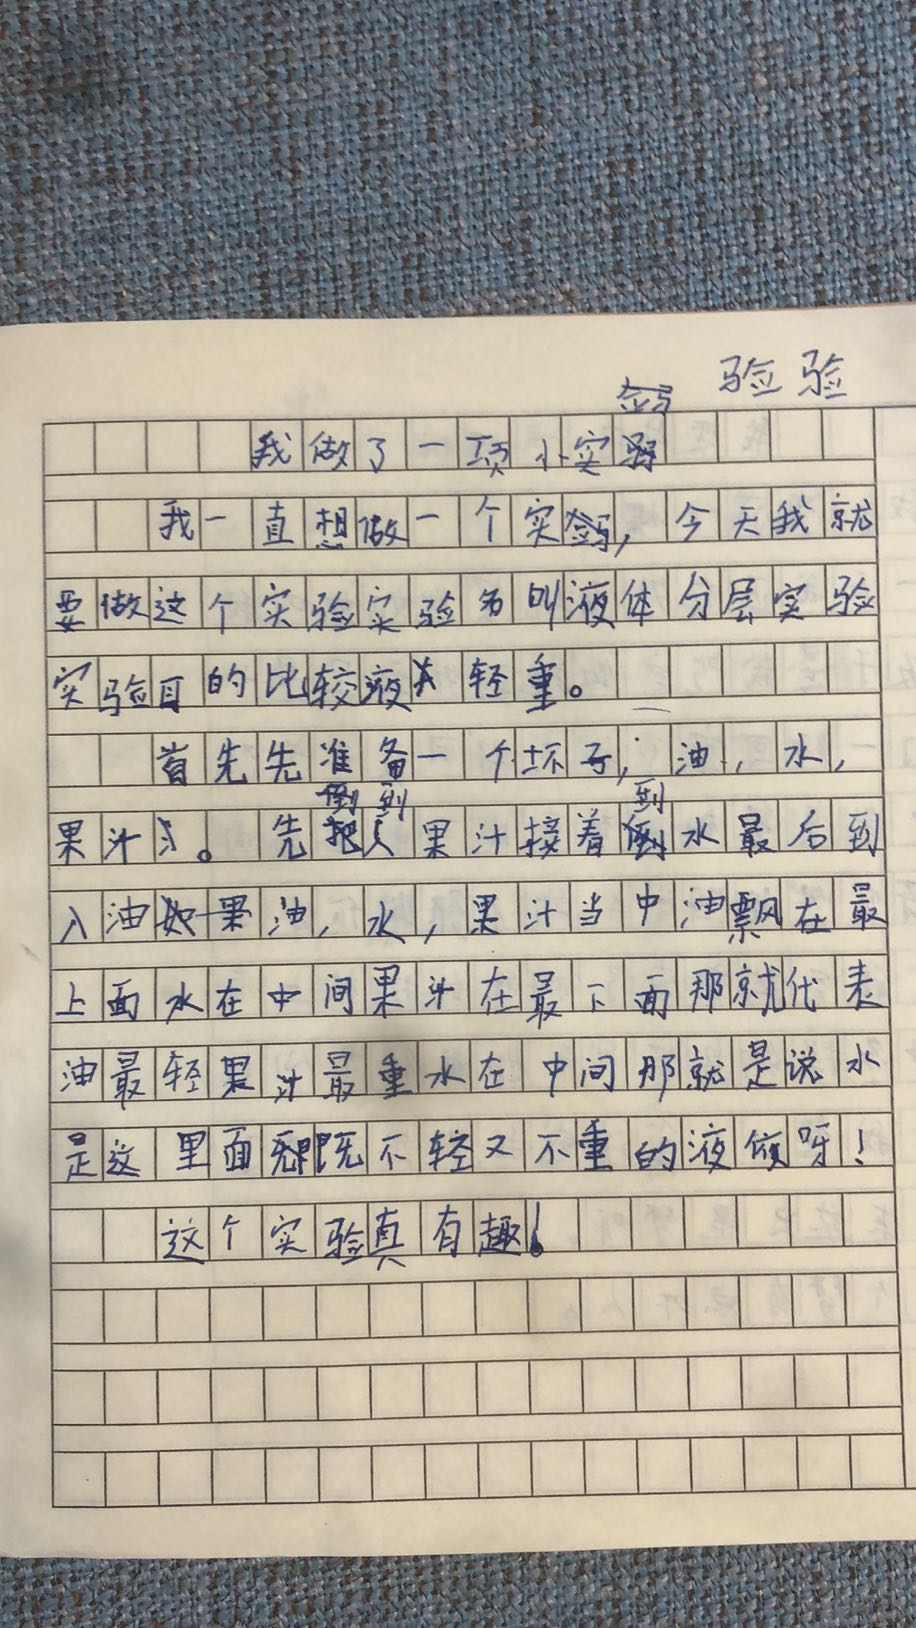 验验
我做了一项小实验
我一直想做一个实验，今天我就
要做这个实验实验名叫液体分层实验
实验目的比较液体轻重。
首先先准备一个坏子，油，水，
倒到 到
果汁。先果汁接着倒水最后到
入油如果油，水，果汁当中油飘在最
上面水在中间果汁在最下面那就代表
油最轻果汁最重水在中间那就是说水
是这里面既不轻又不重的液体呀！
这个实验真有趣！